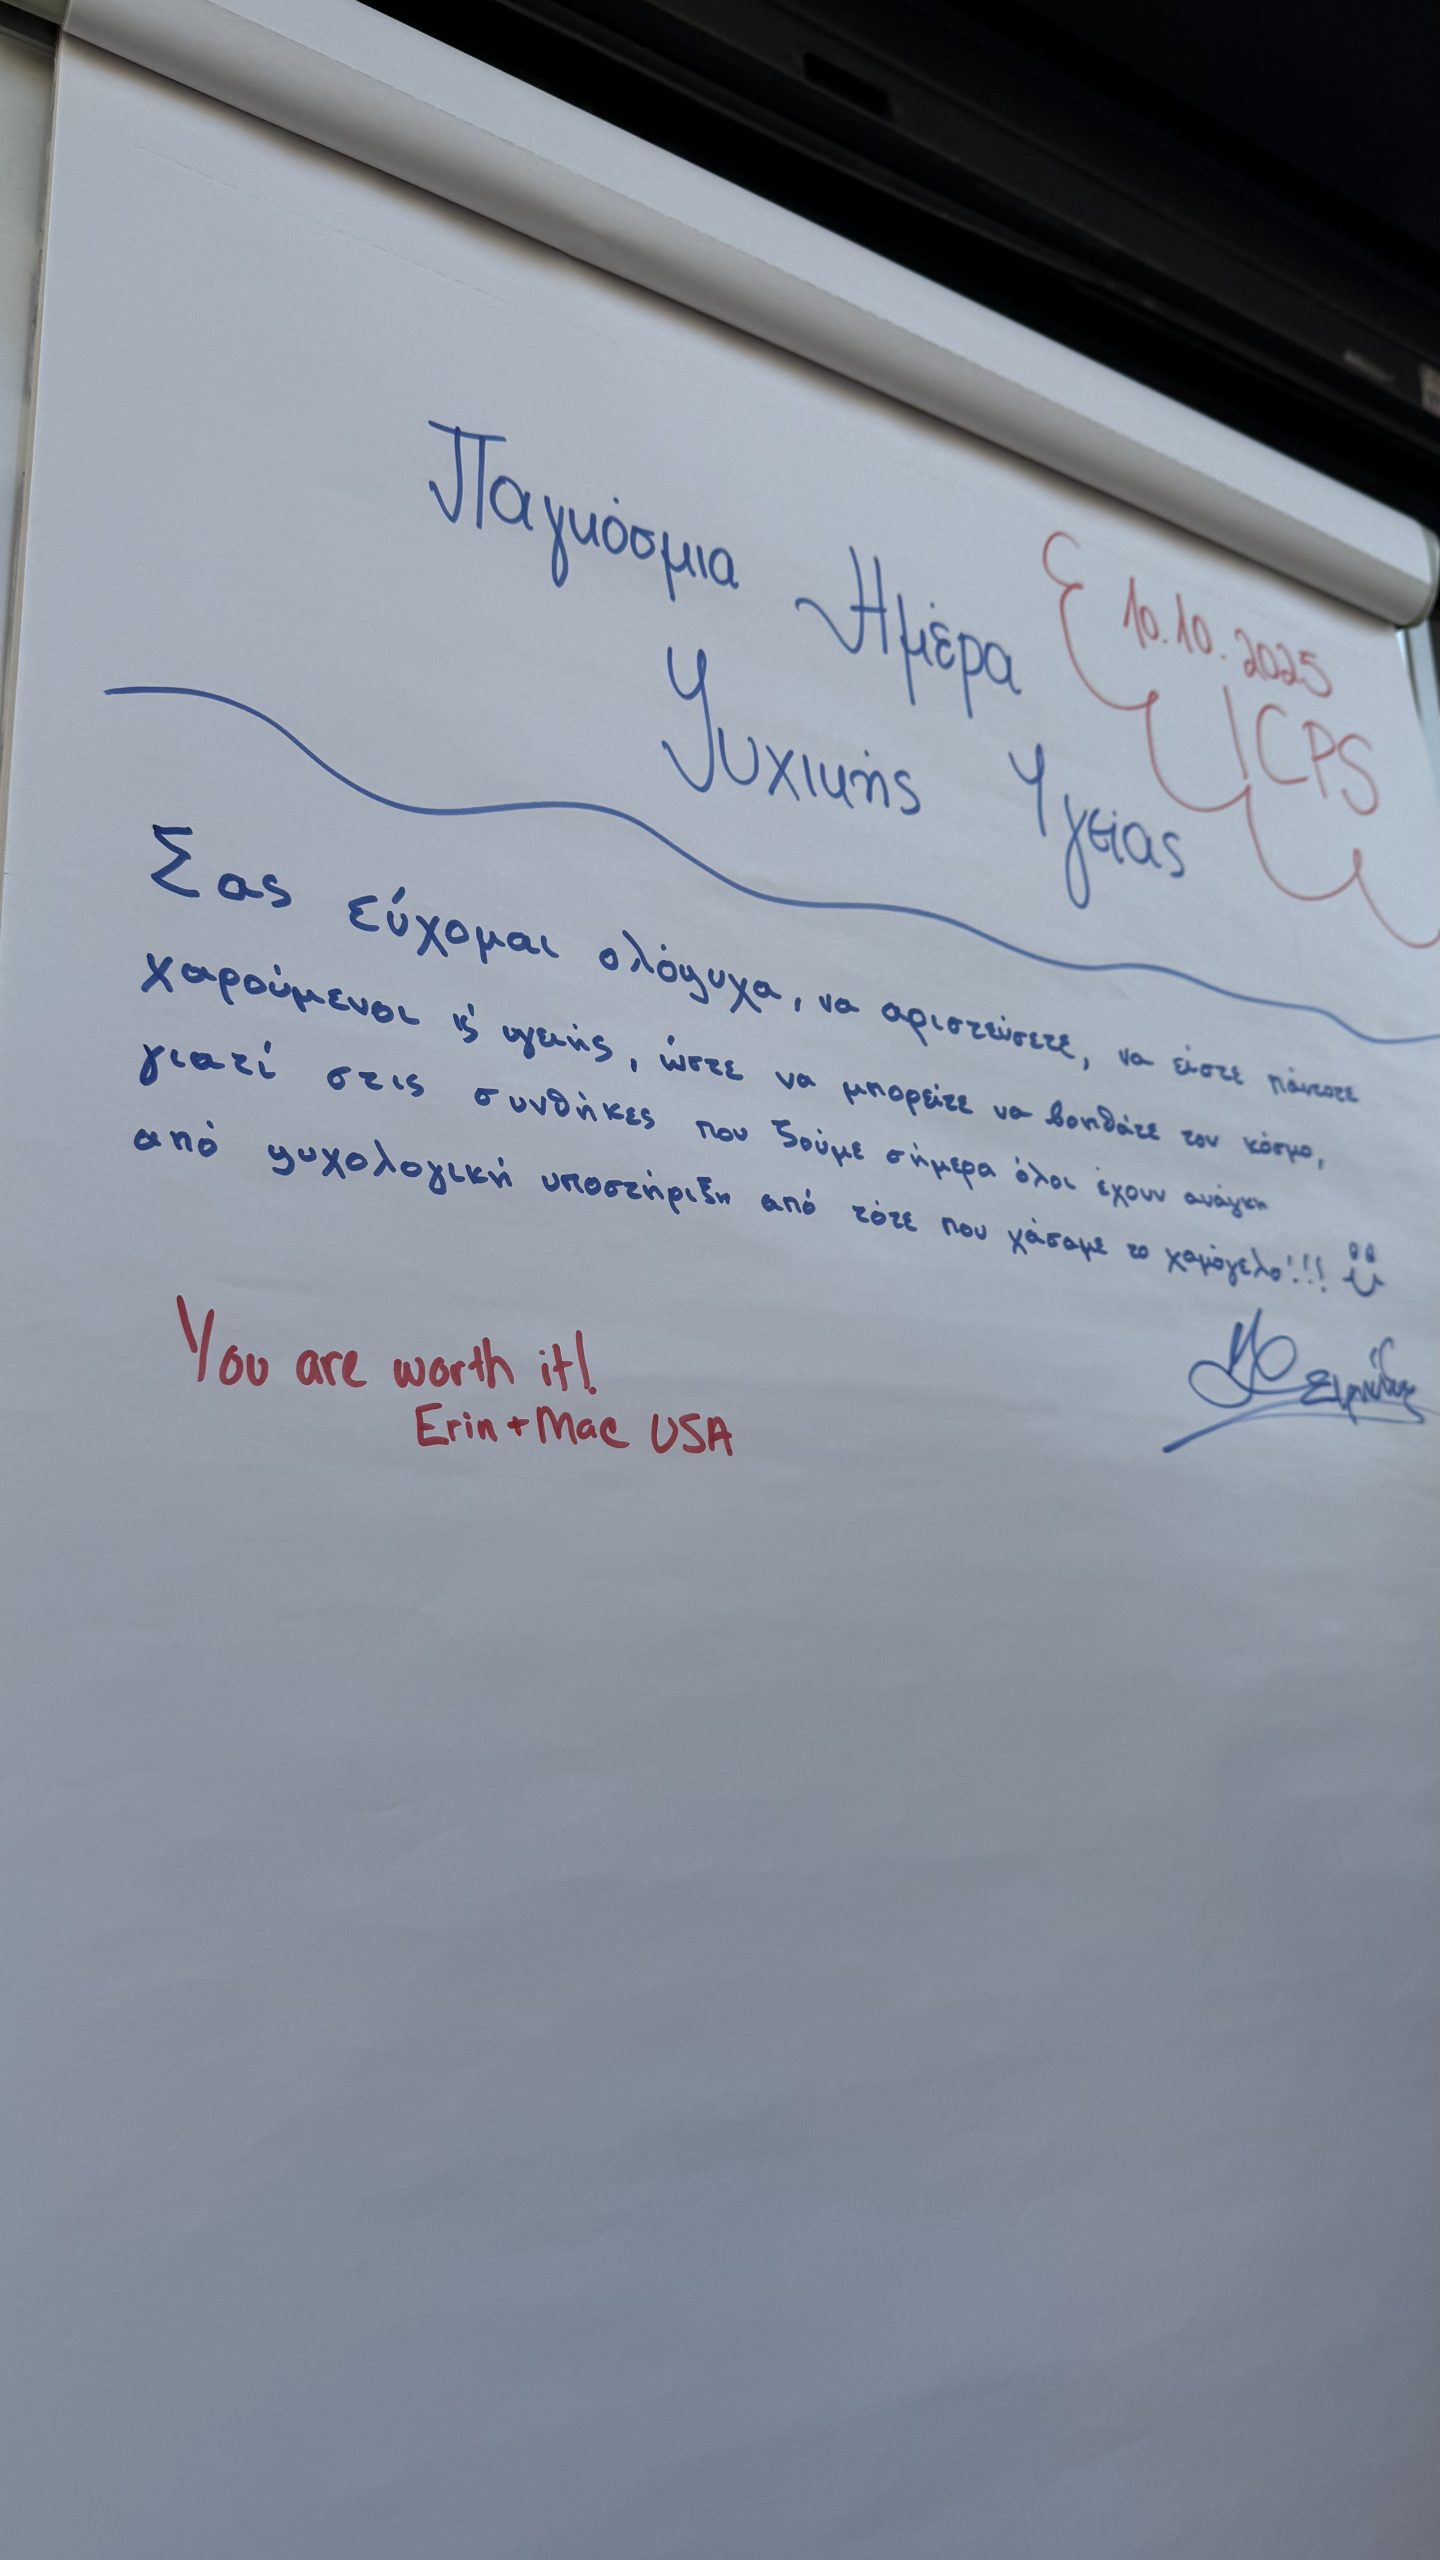 Παγκόσμια Ημέρα
Ψυχικής Υγείας
10.10.2025
ICPS
Σας εύχομαι ολόψυχα, να αριστεύσετε, να είστε πάντοτε
χαρούμενοι κ' υγειής, ώστε να μπορείτε να βοηθάτε τον κόσμο,
γιατί στις συνθήκες που ζούμε σήμερα όλοι έχουν ανάγκη
από ψυχολογική υποστήριξη από τότε που χάσαμε το χαμόγελο!!!
You are worth it!
Erin + Mac USA